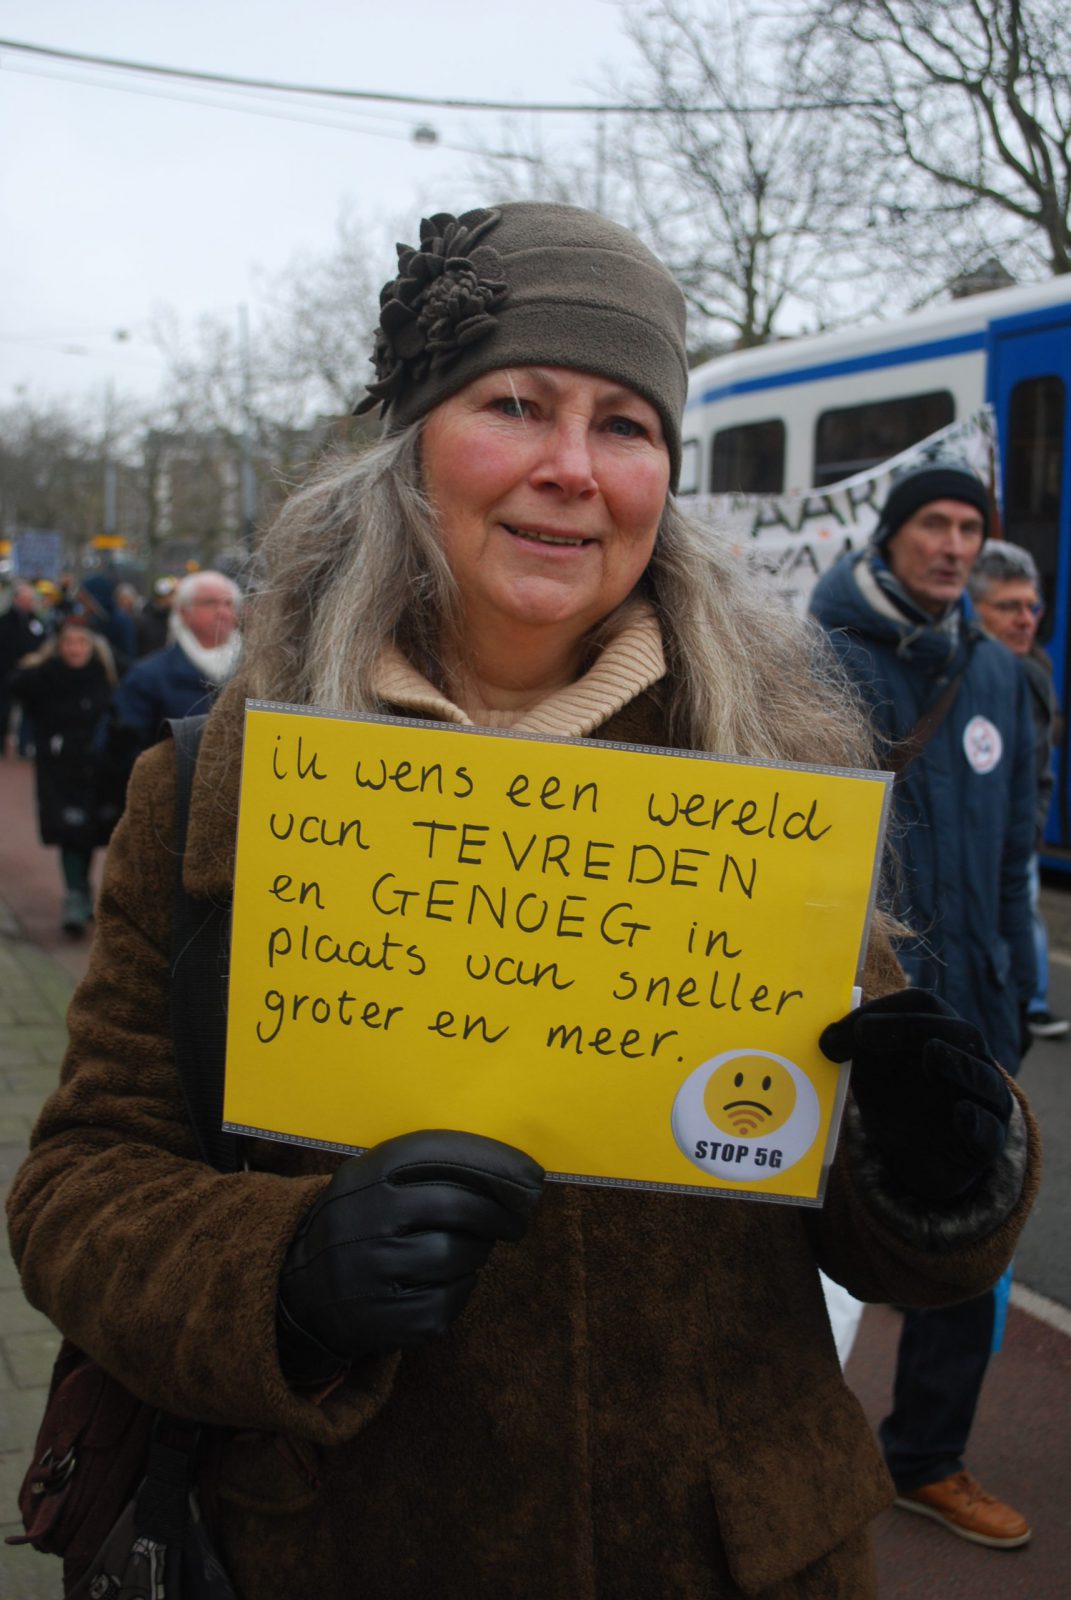 ik wens een wereld
van TEVREDEN
en GENOEG in
plaats van sneller
groter en meer.
STOP 5G
AAR